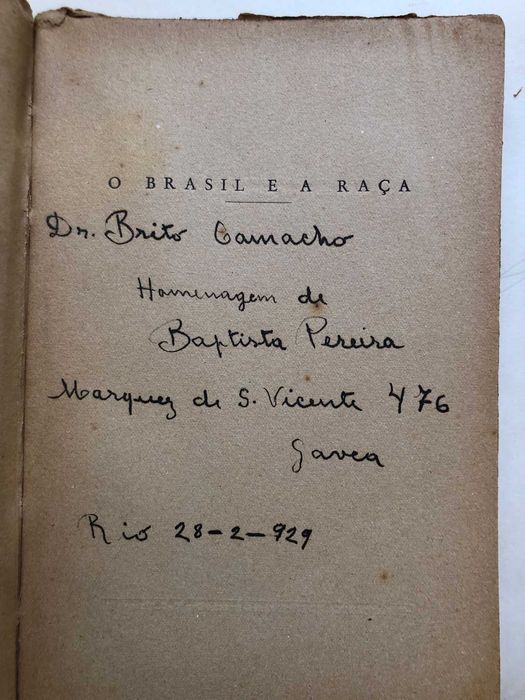 O BRASIL E A RAÇA
Dr. Brito Camacho
Homenagem de
Baptista Pereira
Marquez de S. Vicente 476
Gavea
Rio 28-2-929